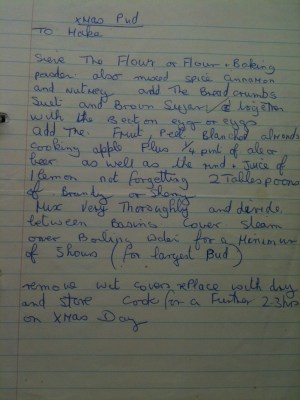 Xmas Pud
To Make
Sieve The Flour or Flour + Baking
powder also mixed spice cinnamon
and Nutmeg add The Bread crumbs
Suet and Brown Sugar together
with the egg or eggs
Add The Fruit, Peel Blanched almonds
cooking apple Plus 1/4 pint of ale or
beer as well as the rind + Juice of
1 lemon not forgetting 2 Tablespoons
of Brandy or Sherry
Mix Very Thoroughly and divide
between Basins Cover Steam
over Boiling Water for a Menimum
of 5 hours (for largest Pud)
remove wet covers replace with dry
and store Cook for a Further 2-3 hrs
on XMas Day